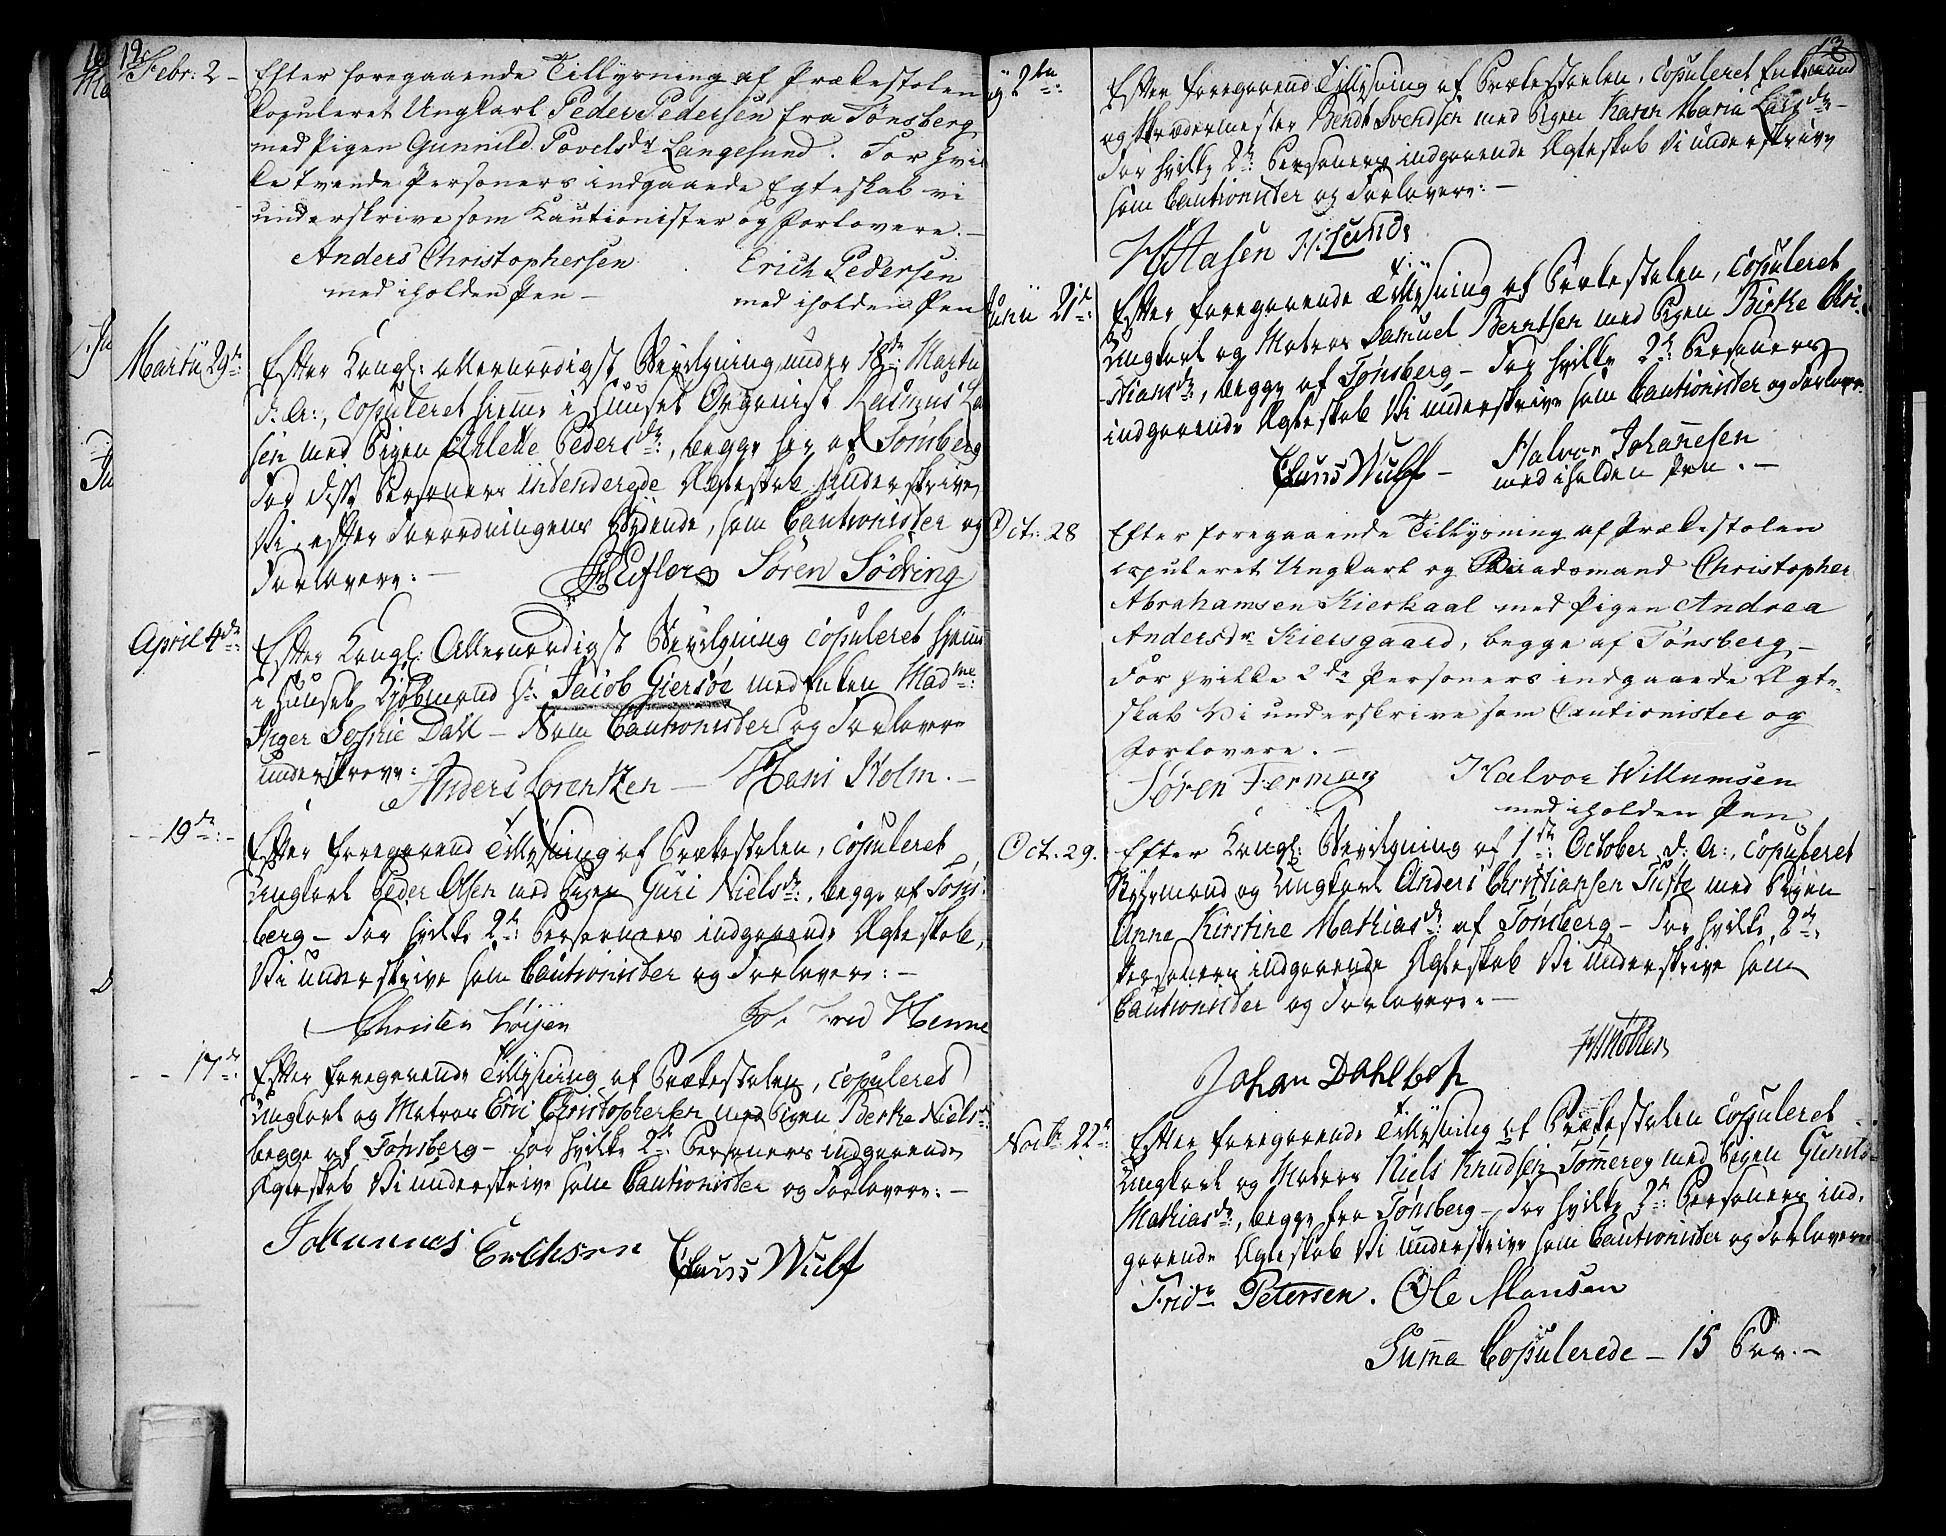 12
Febr: 2 –
Efter foregaaende Tillysning af Prækestolen
Copuleret Ungkarl Peder Pedersen fra Tønsberg
med Pigen Gunnild Povelsdr Langesund. For hvil
ke tvende Personers indgaaede Egteskab vi
underskrive som Kautionister og Forlovere. –
Anders Christophersen Erich Pedersen
med iholden Pen – med iholden Pen
Martii 29de:
Efter Kongl: allernaadigst Bevilgning under 18de: Martii
d: A:, Copuleret hiemme i Huuset Organist Rasmus
sen med Pigen Peders dr:, begge her af Tønsberg
For disse Personers intenderede Ægteskab underskrive
Vi, efter Forordningens Lydende, som Cautionister og
Forlovere: –
Søren Sødring
April 4de:
Efter Kongl: Allernaadigst Bevilgning Copuleret hjemme
i Huuset Kjøbmand Hr: Jacob Giersøe med Enken Madme:
Inger Sophie Dahl – Som Cautionister og Forlovere
underskrive:
Anders Lorentzen – Hans Holm. –
– – 19de: –
Efter foregaaend Tillysning af Prækestolen, Copuleret
Ungkarl Peder Olsen med Pigen Guri Nielsdr:, begge af Tøns-
berg – For hvilke 2de: Personers indgaaende Ægteskab,
Vi underskrive som Cautionister og Forlovere: –
Christen Fred Henne
– – 17de:
Efter foregaaende Tillysning af Prækestolen, Copuleret
Ungkarl og Matros Eric Christophersen med Pigen Berthe Nielsdr:
begge af Tønsberg – For hvilke 2de: Personers indgaaende
Ægteskab Vi underskrive som Cautionister og Forlovere: –
Johannes Erichsen Claus Wulf
13
2den:
Efter foregaaend Tillysning af Prækestoelen, Copuleret Enkemand
og Skrædermester Bendt Svendsen med Pigen Karen Maria Larsdr –
For hvilke 2de: Personers indgaaende Ægteskab Vi underskrive
som Cautionister og Forlovere: –
H: Lund
Junii 21de:
Efter foregaaende Tillysning af Prækestolen, Copuleret
Ungkarl og Matros Samuel Berntsen med Pigen Birthe Chri-
stiansdr:, begge af Tønsberg – For hvilke 2de: Personers
indgaaende Ægteskab Vi underskrive som Cautionister og Forlovere
Claus Wulf – Halvor Johannesen
med iholden Pen. –
Oct: 28
Efter foregaaende Tillysning af Prækestolen
copuleret Ungkarl og Christopher
Abrahamsen Kierhaal med Pigen Andrea
Andersdr Kiersgaard, begge af Tønsberg –
For hvilke 2de Personers indgaaede Ægte-
skab Vi underskrive som Cautionister og
Forlovere. –
Søren Halvor Willumsen
med iholden Pen
Oct. 29.
Efter Kongl: Bevilgning af 1ste: October d: A:, Copuleret
og Ungkarl Anders Christiansen Tufte med Pigen
Anne Kirstine Mathiasdr: af Tønsberg – For hvilke 2de:
Personers indgaaende Ægteskab Vi underskrive som
Cautionister og Forlovere. –
Johan Dahl
Novbr 22de:
Efter foregaaende Tillysning af Prækestolen Copuleret
Ungkarl og Matros Niels Knudsen med Pigen Gunild
Mathiasdr:, begge fra Tønsberg – For hvilke 2de: Personers ind-
gaaende Ægteskab Vi underskrive som Cautionister og Forlovere
Fridr Petersen. Ole Monsen
Summa Copulerede – 15 Par. –